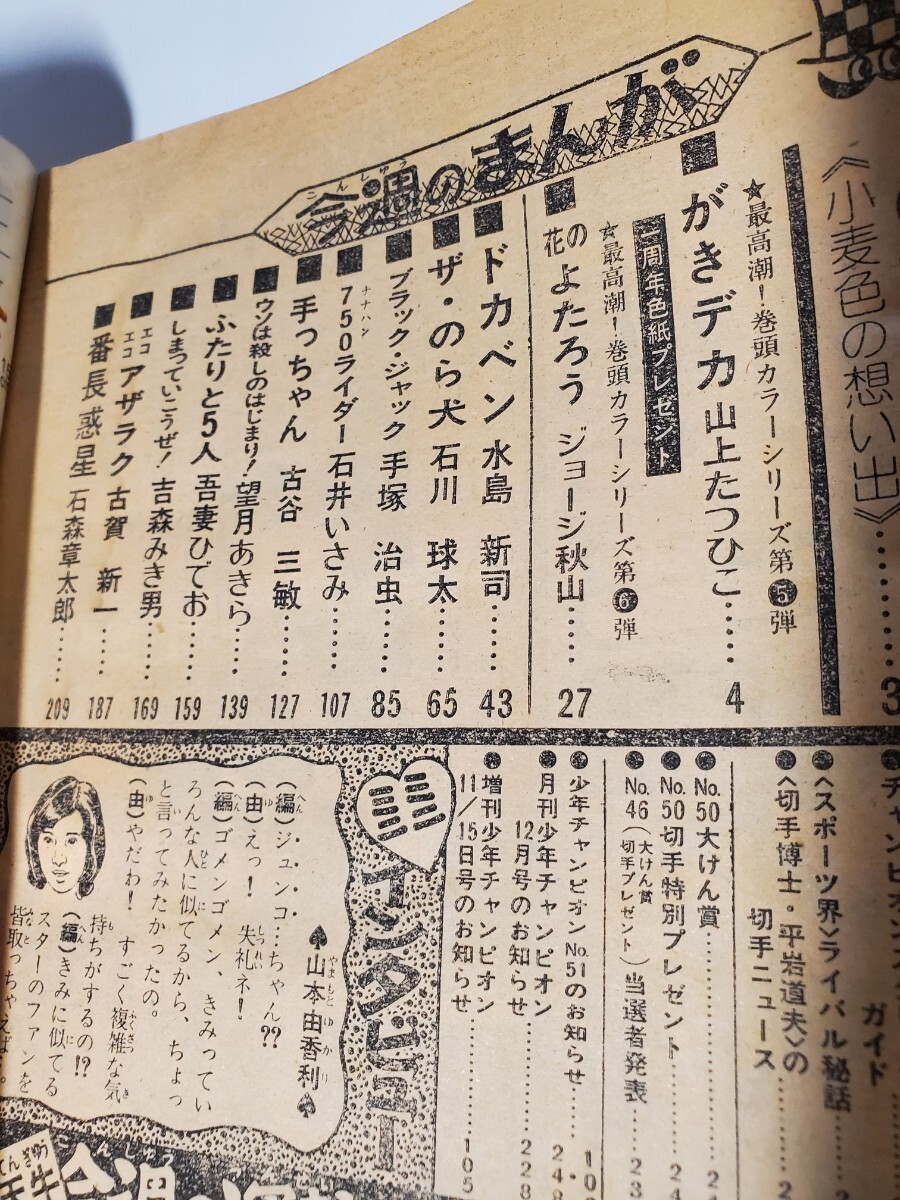 今週のまんが
こんしゅう
《小麦色の想い出》………
☆最高潮!巻頭カラーシリーズ第❺弾
■がきデカ 山上たつひこ……4
二周年色紙プレゼント
☆最高潮!巻頭カラーシリーズ第❻弾
■花のよたろう ジョージ秋山……27
■ドカベン 水島 新司……43
■ザ・のら犬 石川 球太……65
■ブラック・ジャック 手塚 治虫……85
■750ライダー 石井いさみ……107
ナナハン
■手っちゃん 古谷 三敏……127
■ウソは殺しのはじまり! 望月あきら……139
■ふたりと5人 吾妻ひでお……159
■しまっていこうぜ! 吉森みき男……169
■エコエコアザラク 古賀 新一……187
■番長惑星 石森章太郎……209
ガイド
●《スポーツ界》ライバル秘話……
●〈切手博士・平岩道夫〉の
切手ニュース
●No.50大けん賞……
●No.50切手特別プレゼント……
●No.46(大けん賞 切手プレゼント)当選者発表……
●少年チャンピオンNo.51のお知らせ……
●月刊少年チャンピオン
12月号のお知らせ……228
●増刊少年チャンピオン
11/15日号のお知らせ……105
インタビュー
♠山本由香利♠
やまもとゆかり
(編)ジュンコ…ちゃん??
(由)えっ! 失礼ネ!
(編)ゴメンゴメン、きみってい
ろんな人に似てるから、ちょっ
と言ってみたかったの。
(由)やだわ! すごく複雑な気
持ちがするの!?
(編)きみに似てる
スターのファンを
皆取っちゃえば。
こんしゅう